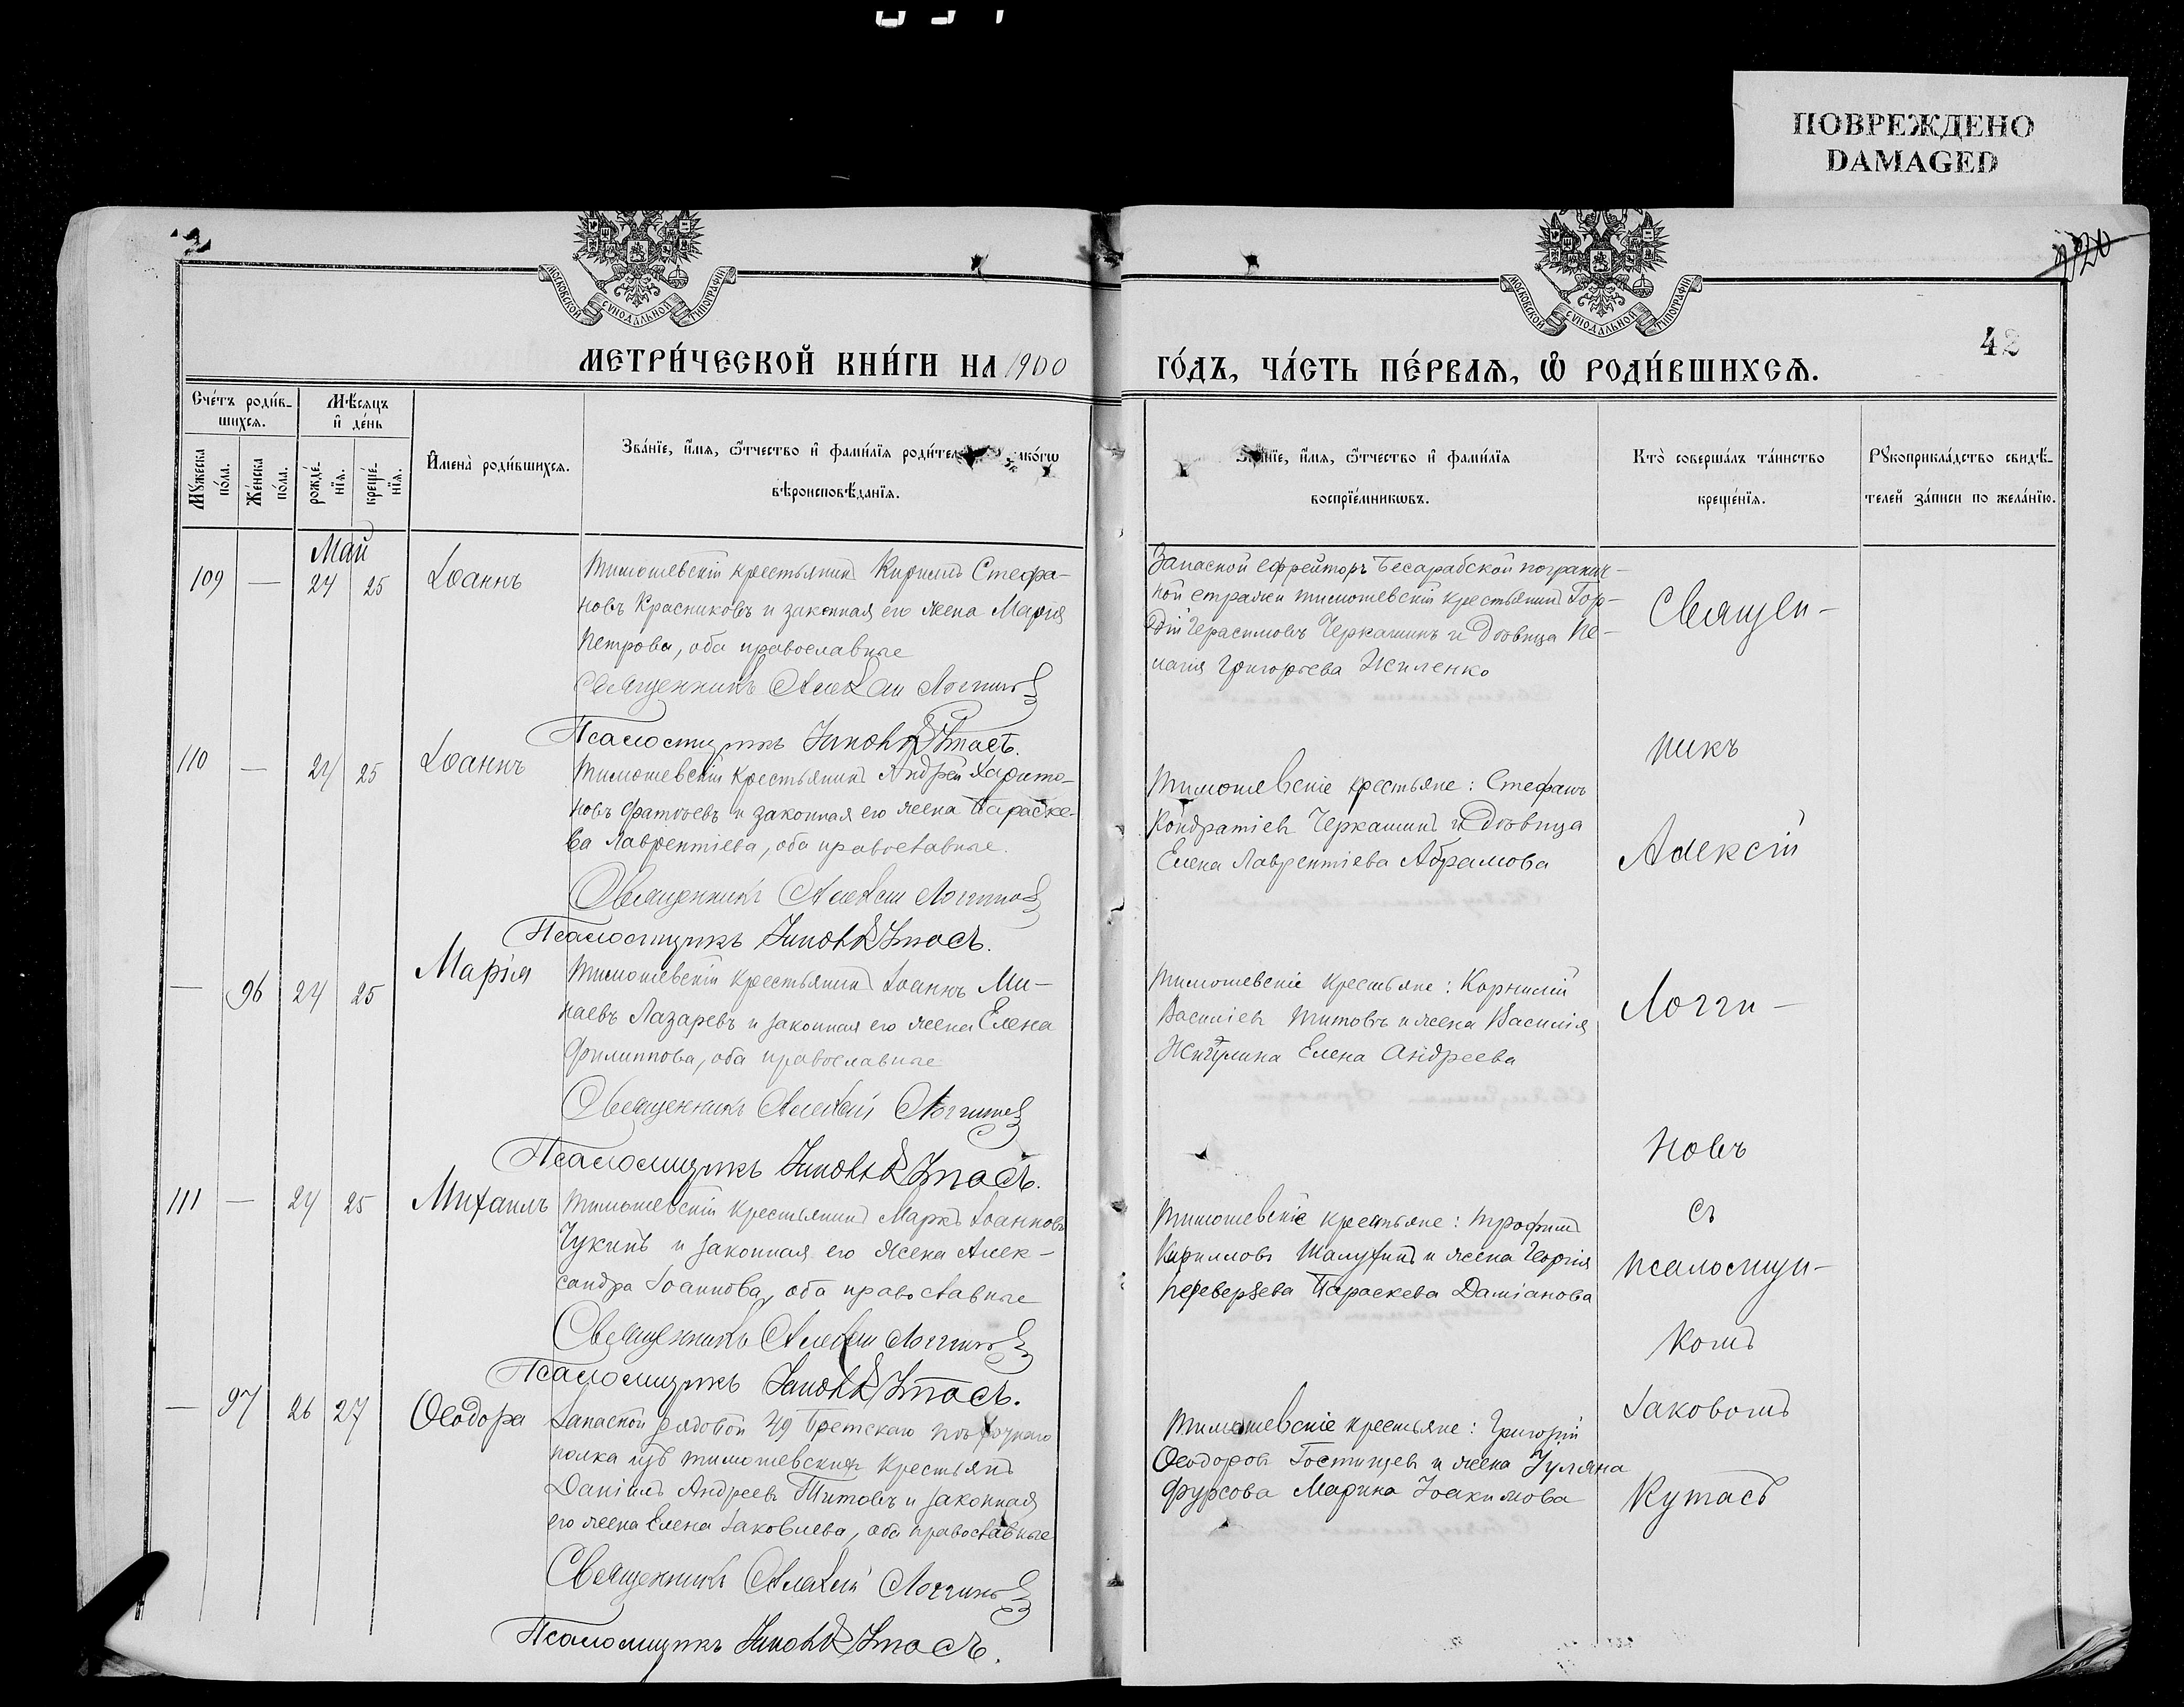 ПОВРЕЖДЕНО
DAMAGED
МОСКОВСКОЙ СѴНОДАЛЬНОЙ ТИПОГРАФІИ
МОСКОВСКОЙ СѴНОДАЛЬНОЙ ТИПОГРАФІИ
42
МЕТРИ́ЧЕСКОЙ КНИ́ГИ НА 1900
ГО́ДЪ, ЧА́СТЬ ПЕ́РВАѦ, Ѡ҆ РОДИ́ВШИХСѦ.
Сче́тъ роди́в-
шихсѧ.
Мѣ́сѧцъ
и҆ де́нь
Мꙋ́жеска
по́ла.
Же́нска
по́ла.
рожде́-
нїѧ.
креще́-
нїѧ.
И҆мена̀ роди́вшихсѧ.
Зва́нїе, и҆́мѧ, ѻ҆́тчество и҆ фами́лїѧ роди́тел како́гѡ
вѣроисповѣ́данїѧ.
Зва́нїе, и҆́мѧ, ѻ҆́тчество и҆ фами́лїѧ
воспрїе́мникѡвъ.
Кто̀ соверша́лъ та́инство
креще́нїѧ.
Рꙋкоприкла́дство свидѣ́-
телей за́писи по жела́нїю.
Май
109 — 24 25 Іоаннъ
Тимошевскій крестьянинъ Кириллъ Стефа-
новъ Красниковъ и законная его жена Марія
Петрова, оба православные
Священникъ Алексій Логгинов
Псаломщикъ Іаковъ Кутасъ.
Запасной ефрейторъ Бесарабской погранич-
ной стражи тимошевскій крестьянинъ Гор-
дій Герасимовъ Черкашинъ и дѣвица Пе-
лагія Григорьева Жиленко
110 — 24 25 Іоаннъ
Тимошевскій крестьянинъ Андрей Харито-
новъ Фатѣевъ и законная его жена Параске-
ва Лаврентіева, оба православные.
Священникъ Алексій Логгинов
Псаломщикъ Іаковъ Кутасъ.
Тимошевскіе крестьяне: Стефанъ
Кондратіевъ Черкашинъ и дѣвица
Елена Лаврентіева Абрамова
— 96 24 25 Марія
Тимошевскій крестьянинъ Іоаннъ Ми-
наевъ Лазаревъ и законная его жена Елена
Филиппова, оба православные
Священникъ Алексій Логгинов
Псаломщикъ Іаковъ Кутасъ.
Тимошевскіе крестьяне: Корнилій
Василіевъ Титовъ и жена Василія
Жигулина Елена Андреева
111 — 24 25 Михаилъ
Тимошевскій крестьянинъ Маркъ Іоанновъ
Чукинъ и законная его жена Алек-
сандра Іоаннова, оба православные
Священникъ Алексій Логгинов
Псаломщикъ Іаковъ Кутасъ.
Тимошевскіе крестьяне: Трофимъ
Кирилловъ Шалухинъ и жена Георгія
Переверзева Параскева Даміанова
— 97 26 27 Ѳеодора
Запасной рядовой 49 Брестскаго пѣхотнаго
полка изъ тимошевскихъ крестьянъ
Даніилъ Андреевъ Титовъ и законная
его жена Елена Іаковлева, оба православные
Священникъ Алексій Логгинов
Псаломщикъ Іаковъ Кутасъ.
Тимошевскіе крестьяне: Григорій
Ѳеодоровъ Гостищевъ и жена Іуліана
Фурсова Марина Іоакимова
Священ-
никъ
Алексій
Логги-
новъ
съ
псаломщи-
комъ
Іаковомъ
Кутасъ